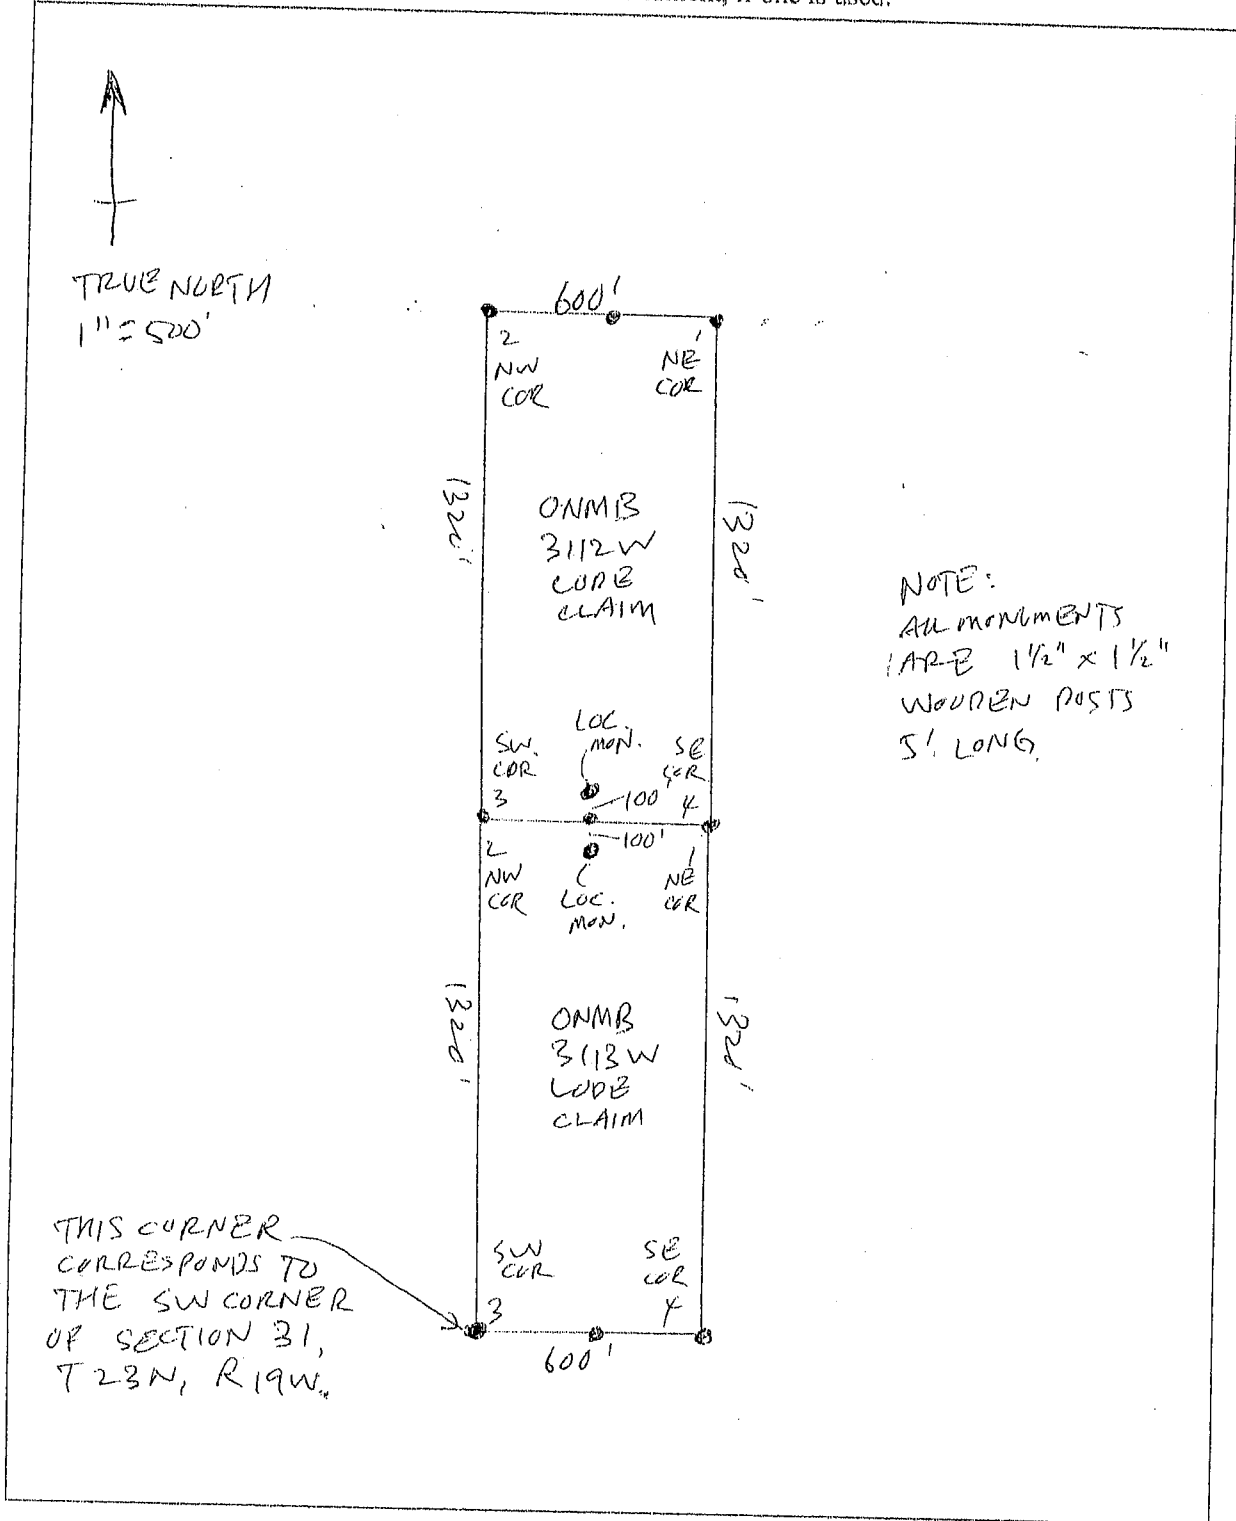 if one is used.
TRUE NORTH
1" = 500'
600'
2
NW
COR
1
NE
COR
1320'
1320'
ONMB
3112W
LODE
CLAIM
NOTE:
ALL MONUMENTS
ARE 1 1/2" x 1 1/2"
WOODEN POSTS
5' LONG.
SW.
COR
3
LOC.
MON.
SE
COR
4
100'
100'
2
NW
COR
LOC.
MON.
1
NE
COR
1320'
1320'
ONMB
3113W
LODE
CLAIM
THIS CORNER
CORRESPONDS TO
THE SW CORNER
OF SECTION 31,
T23N, R19W.
SW
COR
3
SE
COR
4
600'